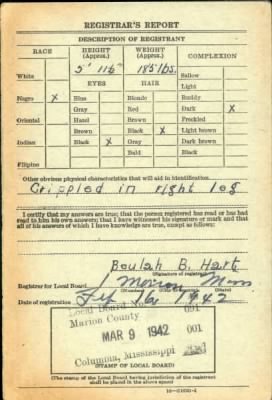 REGISTRAR'S REPORT
DESCRIPTION OF REGISTRANT
RACE HEIGHT (Approx.) WEIGHT (Approx.) COMPLEXION
5' 11½" 185 lbs.
White EYES HAIR Sallow
Light
Negro X Blue Blonde Ruddy
Gray Red Dark X
Oriental Hazel Brown Freckled
Brown Black X Light brown
Indian X Black X Gray Dark brown
Bald Black
Filipino
Other obvious physical characteristics that will aid in identification
Crippled in right leg
I certify that my answers are true; that the person registered has read or has had
read to him his own answers; that I have witnessed his signature or mark and that
all of his answers of which I have knowledge are true, except as follows:
Beulah B. Hart
(Signature of registrar)
Registrar for Local Board 1 Marion Miss
(Number) (City or county) (State)
Date of registration Feb 16 1942
Local Board No. 1 091
Marion County
MAR 9 1942 001
Columbia, Mississippi
(STAMP OF LOCAL BOARD)
(The stamp of the Local Board having jurisdiction of the registrant
shall be placed in the above space)